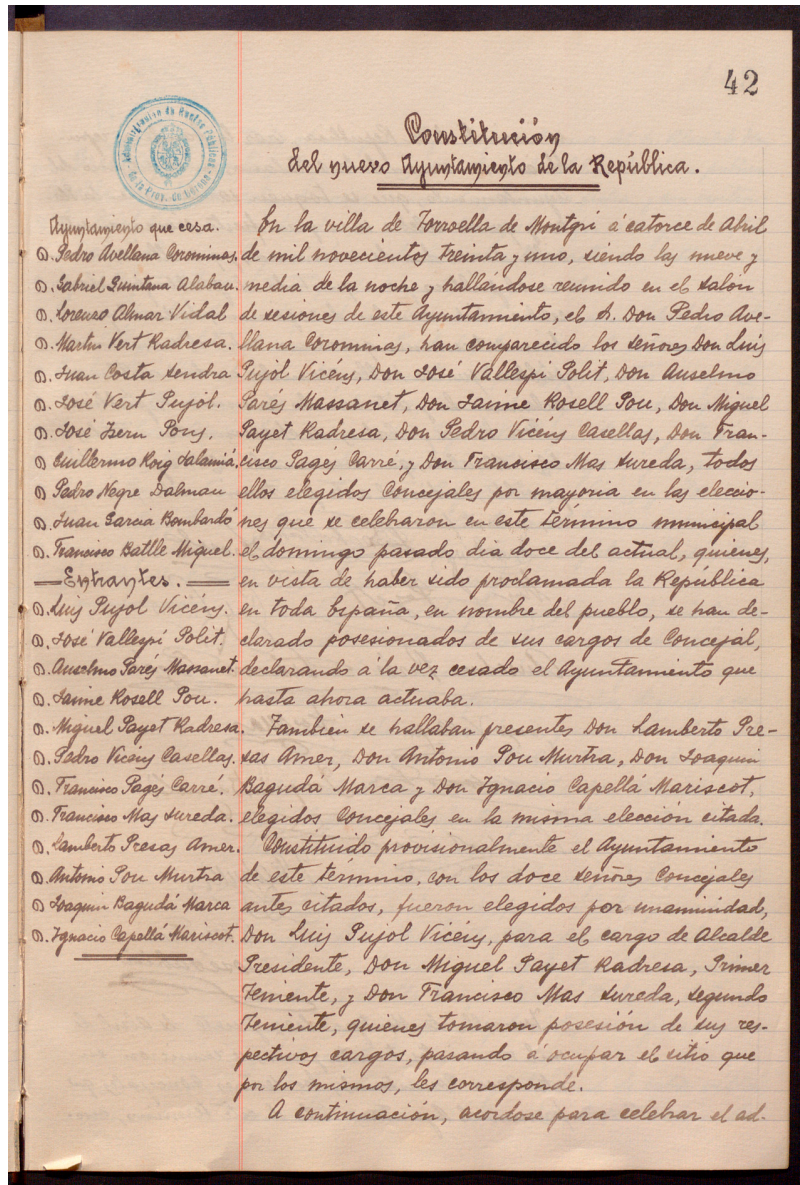 42
Administración de Rentas Públicas
de la Prov. de Gerona
Constitución
del nuevo Ayuntamiento de la República.
Ayuntamiento que cesa.
D. Pedro Avellana Corominas.
D. Gabriel Quintana Alabau.
D. Lorenzo Almar Vidal
D. Martin Vert Radresa.
D. Juan Costa Sendra
D. José Vert Pujol.
D. José Zern Pons.
D. Guillermo Roig Salamiá.
D. Pedro Negre Dalmau
D. Juan Garcia Bombardó
D. Francisco Batlle Miquel.
Entrantes.
D. Luis Pujol Vicéns.
D. José Vallespí Polit.
D. Anselmo Parés Massanet.
D. Jaime Rosell Pou.
D. Miguel Payet Radresa.
D. Pedro Vicéns Casellas.
D. Francisco Pagés Carré.
D. Francisco Mas Sureda.
D. Lamberto Presas Amer.
D. Antonio Pou Murtra
D. Joaquin Bagudá Marca
D. Ignacio Capellá Mariscot.
En la villa de Torroella de Montgrí á catorce de Abril
de mil novecientos treinta y uno, siendo las nueve y
media de la noche y hallándose reunido en el salón
de sesiones de este Ayuntamiento, el Sr. Don Pedro Ave-
llana Corominas, han comparecido los señores Don Luis
Pujol Vicéns, Don José Vallespí Polit, Don Anselmo
Parés Massanet, Don Jaime Rosell Pou, Don Miguel
Payet Radresa, Don Pedro Vicéns Casellas, Don Fran-
cisco Pagés Carré, y Don Francisco Mas Sureda, todos
ellos elegidos Concejales por mayoria en las eleccio-
nes que se celebraron en este término municipal
el domingo pasado dia doce del actual, quienes,
en vista de haber sido proclamada la República
en toda España, en nombre del pueblo, se han de-
clarado posesionados de sus cargos de Concejal,
declarando á la vez cesado el Ayuntamiento que
hasta ahora actuaba.
Tambien se hallaban presentes Don Lamberto Pre-
sas Amer, Don Antonio Pou Murtra, Don Joaquin
Bagudá Marca y Don Ignacio Capellá Mariscot,
elegidos Concejales en la misma elección citada.
Constituido provisionalmente el Ayuntamiento
de este término, con los doce señores Concejales
antes citados, fueron elegidos por unaminidad,
Don Luis Pujol Vicéns, para el cargo de Alcalde
Presidente, Don Miguel Payet Radresa, Primer
Teniente, y Don Francisco Mas Sureda, segundo
Teniente, quienes tomaron posesión de sus res-
pectivos cargos, pasando á ocupar el sitio que
por los mismos, les corresponde.
A continuación, acordose para celebrar el ad-